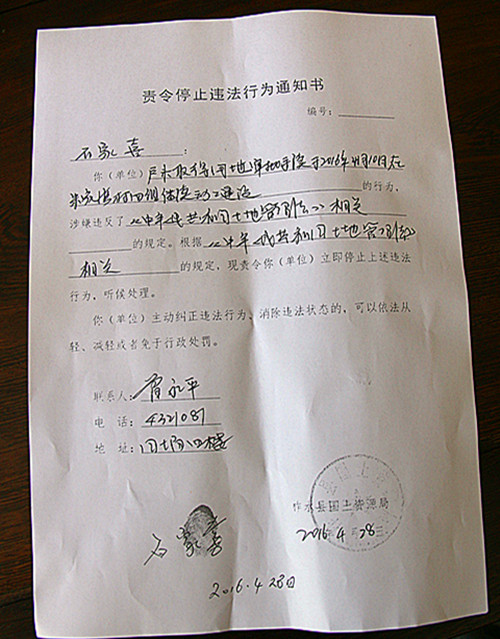 责令停止违法行为通知书
编号：
石家喜：
你（单位）户未取得用地审批手续于2016年4月10日在
组 动工建设 的行为，
涉嫌违反了《中华人民共和国土地管理法》相关
的规定。根据《中华人民共和国土地管理法》
相关 的规定，现责令你（单位）立即停止上述违法
行为，听候处理。
你（单位）主动纠正违法行为、消除违法状态的，可以依法从
轻、减轻或者免于行政处罚。
联系人：永平
电 话：4321081
地 址：国土局四楼
柞水县国土资源局
2016.4.28日
石家喜
2016.4.28日